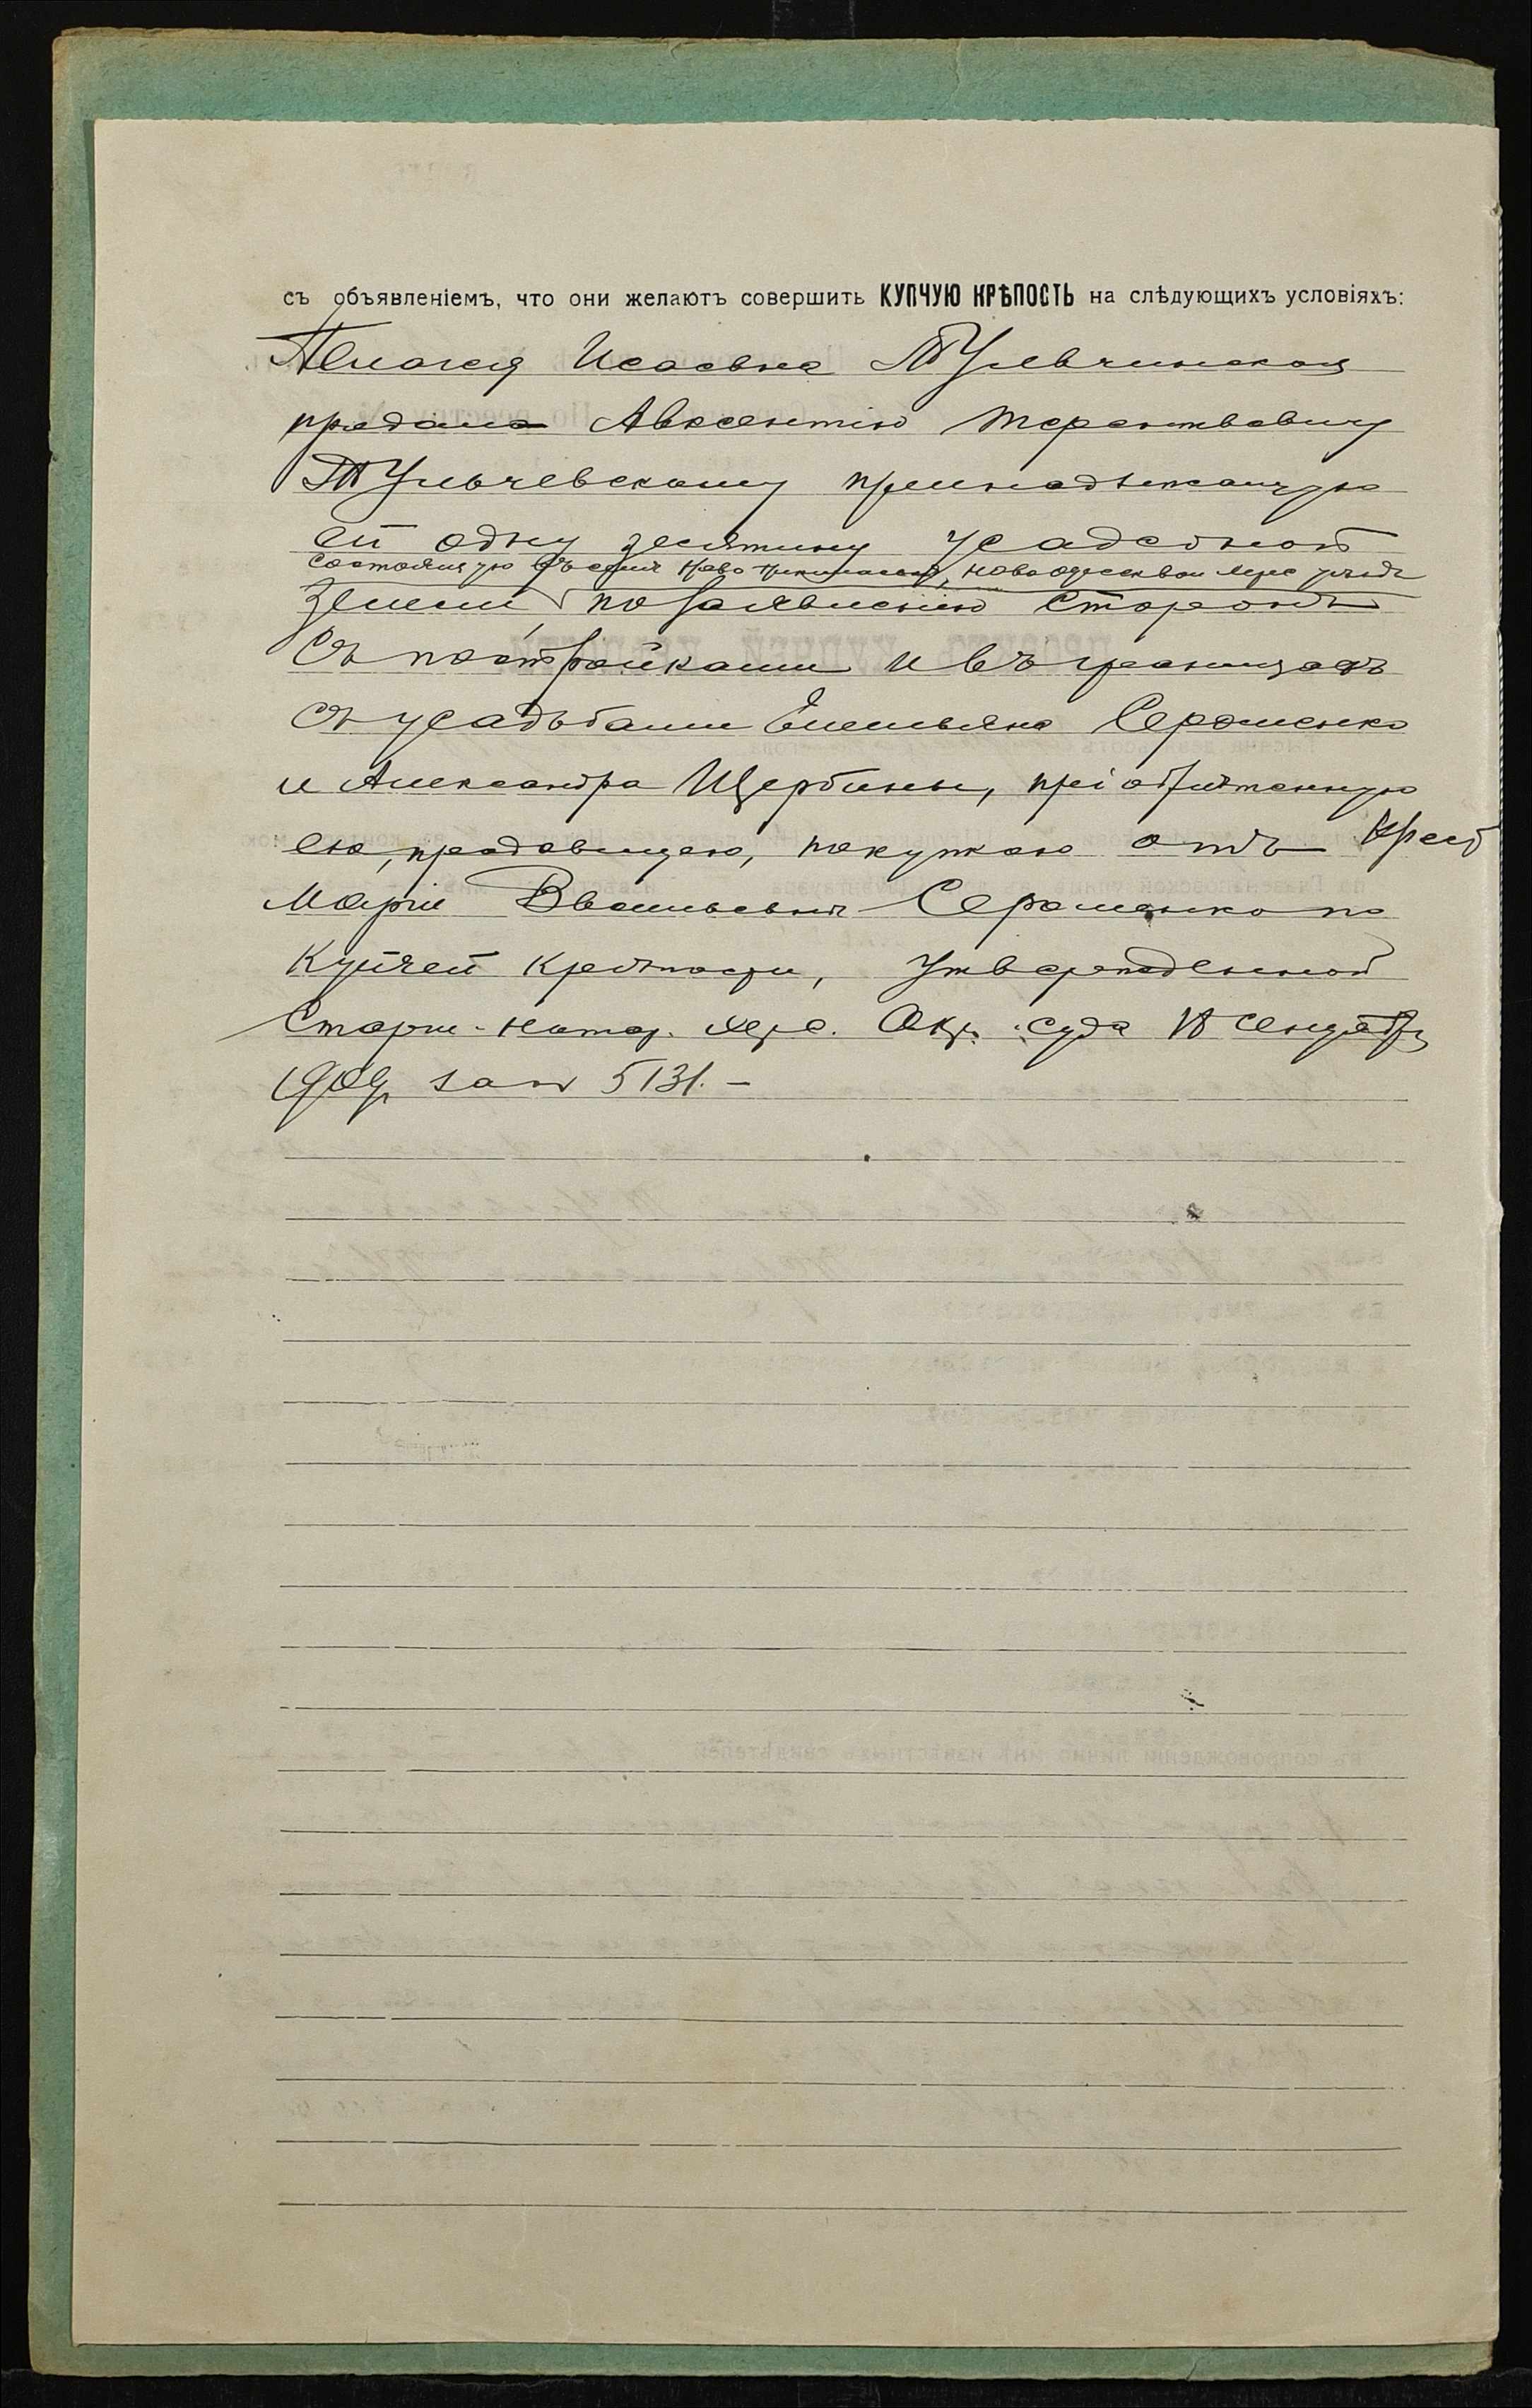 съ объявленіемъ, что они желаютъ совершить КУПЧУЮ КРѢПОСТЬ на слѣдующихъ условіяхъ:
Исаевна Тульчинская
продала Авксентію Терентьевичу
Тульчевскому принадлежащую
ей одну десятину усадебной
состоящую въ селѣ Ново
земли по заявленію сторонъ
съ постройками и въ границахъ
съ усадьбами Емельяна Сероменко
и Александра Щербины, пріобрѣтенную
ею, продавицею, покупкою отъ Крест
Маріи Сероменко по
купчей крѣпости, утвержденной
Старш. Нотар. Херс. Окр. Суда сентября
1909 за № 5131. –